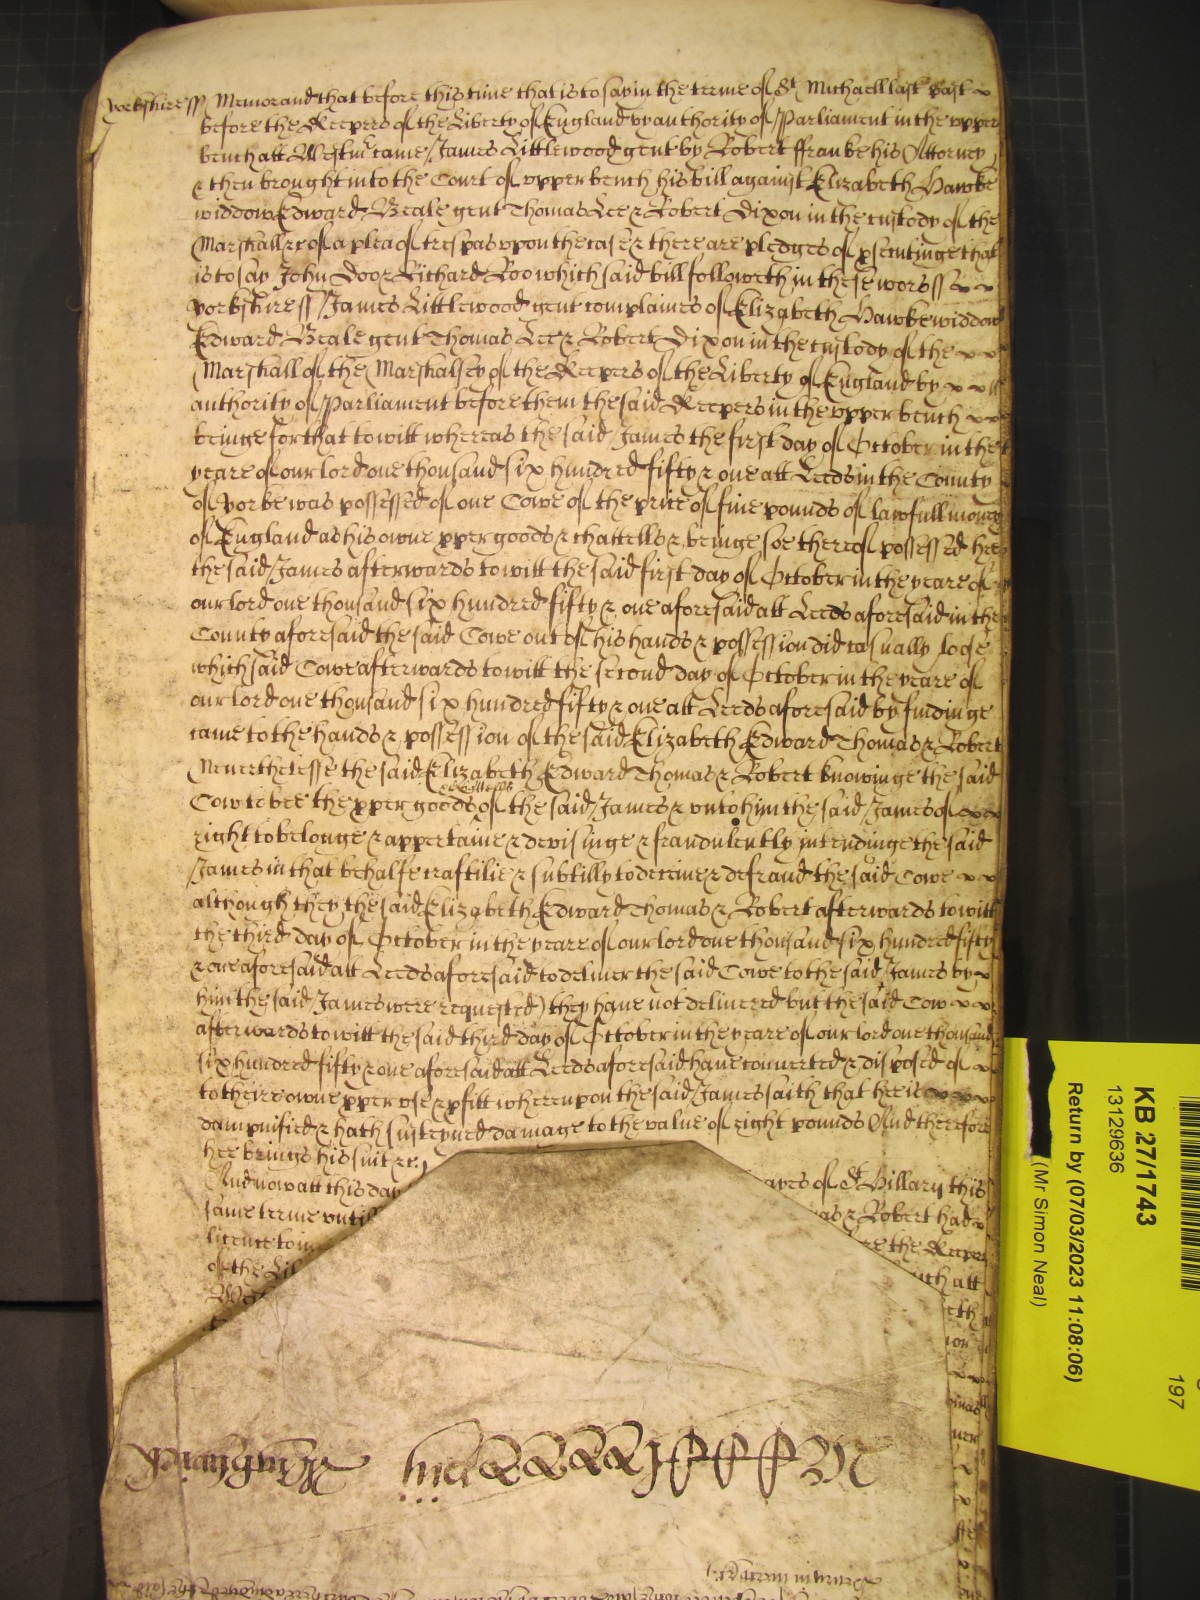 Yorkshire ss Memorand that before this time that is to say in the terme of St Michaell last past
before the Keepers of the Liberty of England by authority of Parliament in the upper
bench att Westmr came James Littlewood gent by Robert ffranke his Attorney
& then brought into the Court of upper bench his bill against Elizabeth Hawke
widdow Edward Beale gent Thomas Lee & Robert Dixon in the custody of the
Marshall &c of a plea of trespas upon the case & there are pledges of psecutinge that
is to say John Doo & Richard Roo which said bill followeth in these words ss
Yorkshire ss James Littlewood gent complaines of Elizabeth Hawke widdow
Edward Beale gent Thomas Lee & Robert Dixon in the custody of the
Marshall of the Marshalsey of the Keepers of the Liberty of England by
authority of Parliament before them the said Keepers in the upper bench
beinge for that to witt whereas the said James the first day of October in the
yeare of our lord one thousand six hundred fifty & one att Leeds in the County
of Yorke was possessed of one Cowe of the price of five pounds of lawfull money
of England as his owne pper goods & chattells & beinge soe thereof possessed hee
the said James afterwards to witt the said first day of October in the yeare of
our lord one thousand six hundred fifty & one aforesaid att Leeds aforesaid in the
County aforesaid the said Cowe out of his hands & possession did casually loose
which said Cowe afterwards to witt the second day of October in the yeare of
our lord one thousand six hundred fifty & one att Leeds aforesaid by findinge
came to the hands & possession of the said Elizabeth Edward Thomas & Robert
Neverthelesse the said Elizabeth Edward Thomas & Robert knowinge the said
& chattells
Cow to bee the pper goods of the said James & unto him the said James of
right to belonge & appertaine & devisinge & fraudulently intendinge the said
James in that behalfe craftilie & subtilly to deceive & defraud the said Cowe
although they the said Elizabeth Edward Thomas & Robert afterwards to witt
the third day of October in the yeare of our lord one thousand six hundred fifty
& one aforesaid att Leeds aforesaid to deliver the said Cowe to the said James by
him the said James were requested) they have not delivered but the said Cow
afterwards to witt the said third day of October in the yeare of our lord one thousand
six hundred fifty & one aforesaid att Leeds aforesaid have converted & disposed of
to theire owne pper use & pfitt whereupon the said James saith that hee is
dampnified & hath susteyned damage to the value of eight pounds And therefore
hee brings his suit &c.
And now att this day of St Hillary this
same terme untill & Robert had
licence to the Keepers
of the att
KB 27/1743
13129636
Return by (07/03/2023 11:08:06)
(Mr Simon Neal)
197